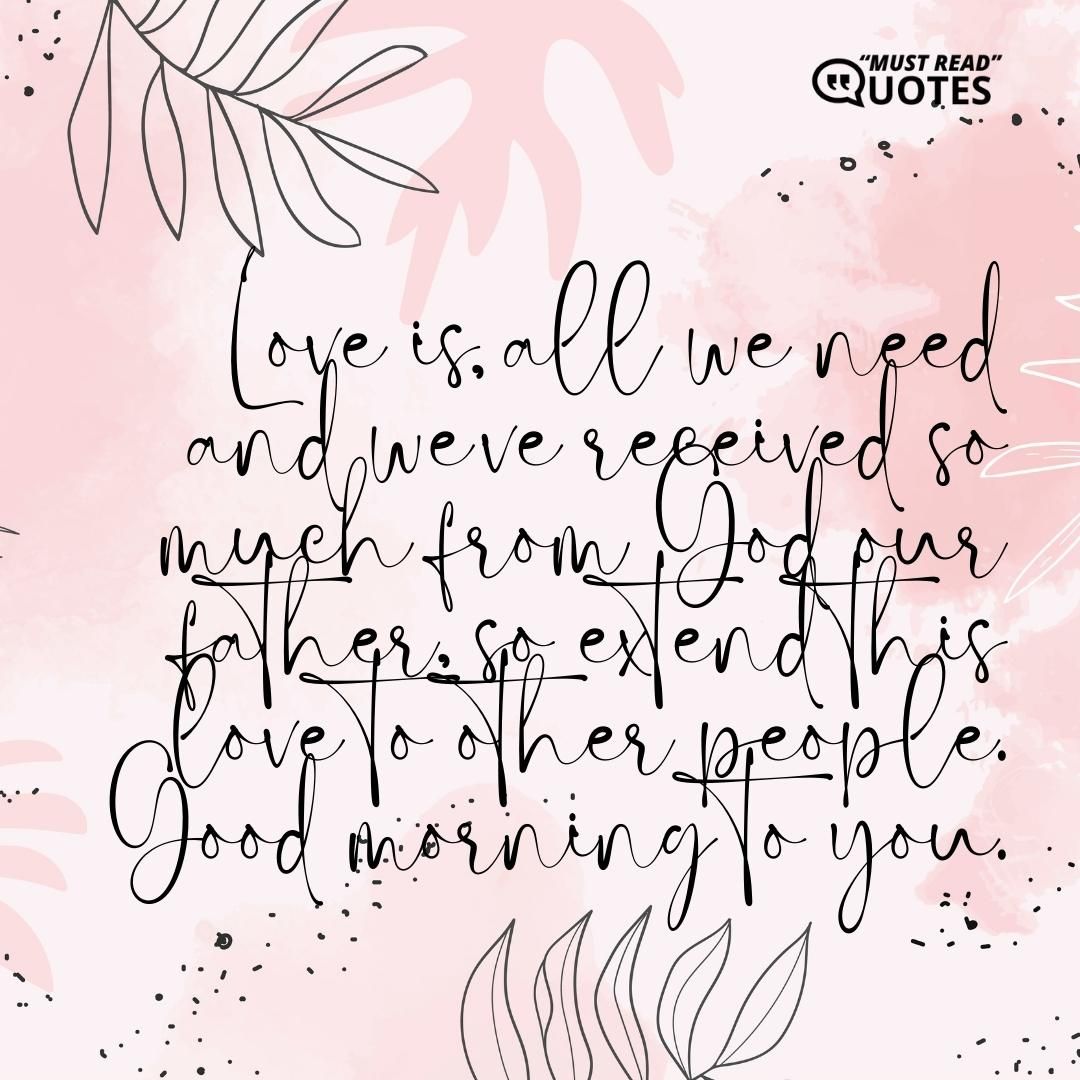 “MUST READ”
QUOTES
Love is, all we need
and we've received so
much from God our
father, so extend this
love to other people.
Good morning to you.